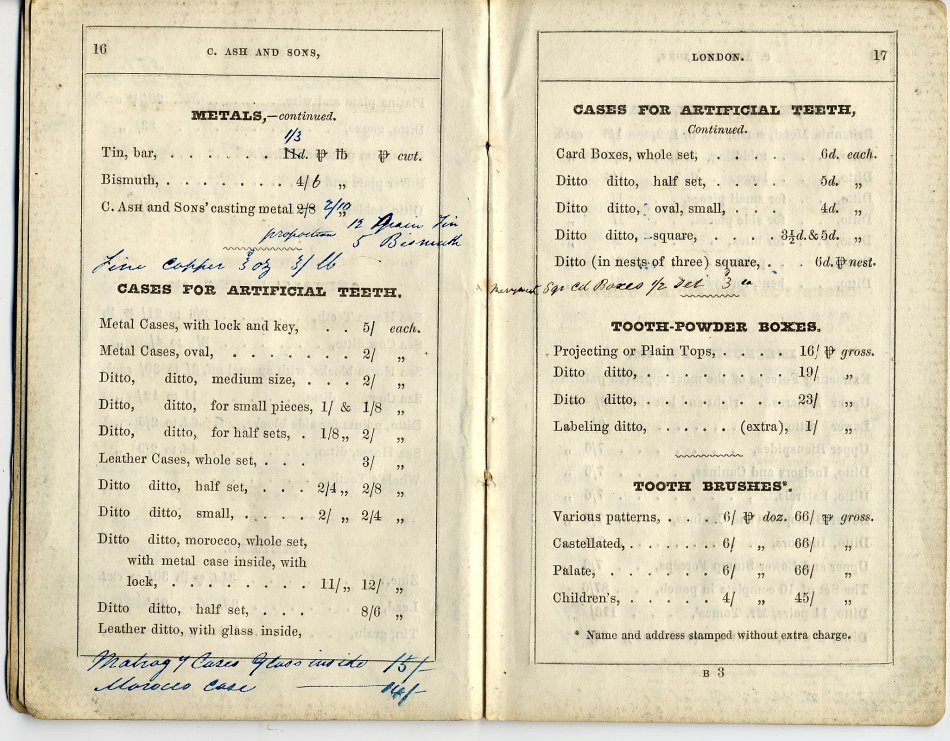 16
C. ASH AND SONS,
METALS,—continued.
1/3
Tin, bar, . . . . . . . . 11d. ⅌ lb ⅌ cwt.
Bismuth, . . . . . . . . 4/6 „
C. ASH and SONS' casting metal 2/8 2/10 „
proportion 12 Grain Tin
5 Bismuth
Fine Copper 3 oz 3/ lb
CASES FOR ARTIFICIAL TEETH.
Metal Cases, with lock and key, . . 5/ each.
Metal Cases, oval, . . . . . . . 2/ „
Ditto, ditto, medium size, . . . 2/ „
Ditto, ditto, for small pieces, 1/ & 1/8 „
Ditto, ditto, for half sets, . 1/8 „ 2/ „
Leather Cases, whole set, . . . 3/ „
Ditto ditto, half set, . . . 2/4 „ 2/8 „
Ditto ditto, small, . . . . . 2/ „ 2/4 „
Ditto ditto, morocco, whole set,
with metal case inside, with
lock, . . . . . . . . 11/ „ 12/ „
Ditto ditto, half set, . . . . . 8/6 „
Leather ditto, with glass inside,
Mahogy Cases Glass inside 15/-
Morocco case 14/-
LONDON.
17
CASES FOR ARTIFICIAL TEETH,
Continued.
Card Boxes, whole set, . . . . 6d. each.
Ditto ditto, half set, . . . . 5d. „
Ditto ditto, oval, small, . . . 4d. „
Ditto ditto, square, . . . 3½d. & 5d. „
Ditto (in nests of three) square, . . 6d. ⅌ nest.
Sqr Cd Boxes 1/2 Set 3 ea
TOOTH-POWDER BOXES.
Projecting or Plain Tops, . . . . 16/ ⅌ gross.
Ditto ditto, . . . . . . . . 19/ „
Ditto ditto, . . . . . . . . 23/ „
Labeling ditto, . . . . . (extra), 1/ „
TOOTH BRUSHES*.
Various patterns, . . . . 6/ ⅌ doz. 66/ ⅌ gross.
Castellated, . . . . . . . 6/ „ 66/ „
Palate, . . . . . . . . 6/ „ 66/ „
Children's, . . . . . . . 4/ „ 45/ „
* Name and address stamped without extra charge.
B 3